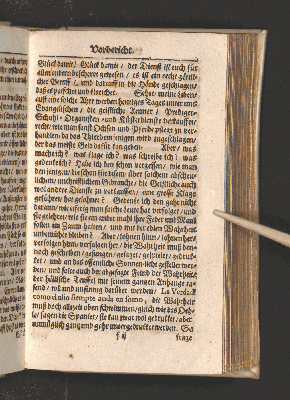 Vorbericht.
Glück damit, Glück damit, der Dienst ist euch für
allen andern bescheret gewesen, es ist ein recht göttli-
cher Beruff, und darauff in die Hände geschlagen,
daß es patschet und
auff eine solche Art werden heutiges Tages unter uns
Evangelischen, die geistliche Aemter, Prediger-
Schul- Organisten- und Küsterdienste verkauffet,
recht wie man sonst Ochsen und Pferde pflegt zu ver-
handeln, da das Thier demjenigen wird zugeschlagen,
der das meiste Geld dafür kan geben. Aber, was
mache ich? was sage ich? was schreibe ich? was
gedencke ich? Habe ich den schon vergessen, wie man
den jenigen, die schon für diesem, über solchem abscheu-
lichen, unchristlichem Gebrauche, die Geistliche auch
wol andere Dienste zu verkauffen, eine grosse Klage
geführet hat gelohnet? Gedencke ich den gahr nicht
daran, wie eifrig man solche Leute hat verfolget, und
sie gelehret, wie sie ein ander mahl ihre Feder und Maul
sollen im Zaum halten, und mit der edlen Wahrheit
unvexiret bleiben? Aber, lohnen hin, lohnen her,
verfolgen hin, verfolgen her, die Wahrheit muß den-
noch geschrieben, gesungen, gesaget, gespielet, gedrucket
und an das öffentliche Sonnenliecht gestellet wer-
den, und solte auch der abgesagte Feind der Wahrheit
der höllische Teuffel mit seinem gantzen Anhange ra-
send, toll und unsinnig darüber werden. La Verdad
como el olio siempre anda en somo, die Wahrheit
muß doch allezeit oben schwimmen, gleich wie das Oehl
sagen die Spanier, sie kan zwar wol gedrucket, aber
unmüglich gantz und gahr unterdrucket werden. Ga
f ij
frage